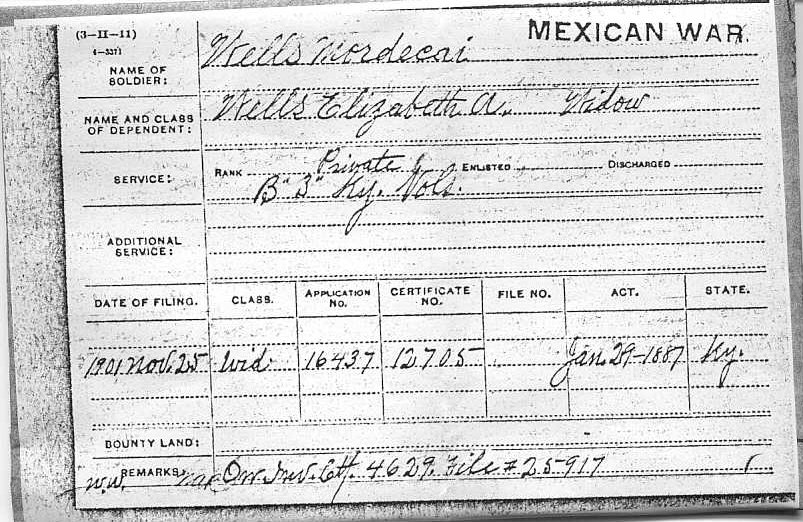 (3-II-11)
4-3271
MEXICAN WAR.
NAME OF SOLDIER: Wells Mordecai
NAME AND CLASS OF DEPENDENT: Wells Elizabeth A., Widow
SERVICE: RANK Private ENLISTED DISCHARGED
B" 3" Ky. Vols.
ADDITIONAL SERVICE:
DATE OF FILING. CLASS. APPLICATION No. CERTIFICATE NO. FILE NO. ACT. STATE.
1901 Nov. 25 Wid. 16437 12705 Jan. 29-1887 Ky.
BOUNTY LAND:
REMARKS: Inv. Ctf. 4629. File # 25-917
W.W.